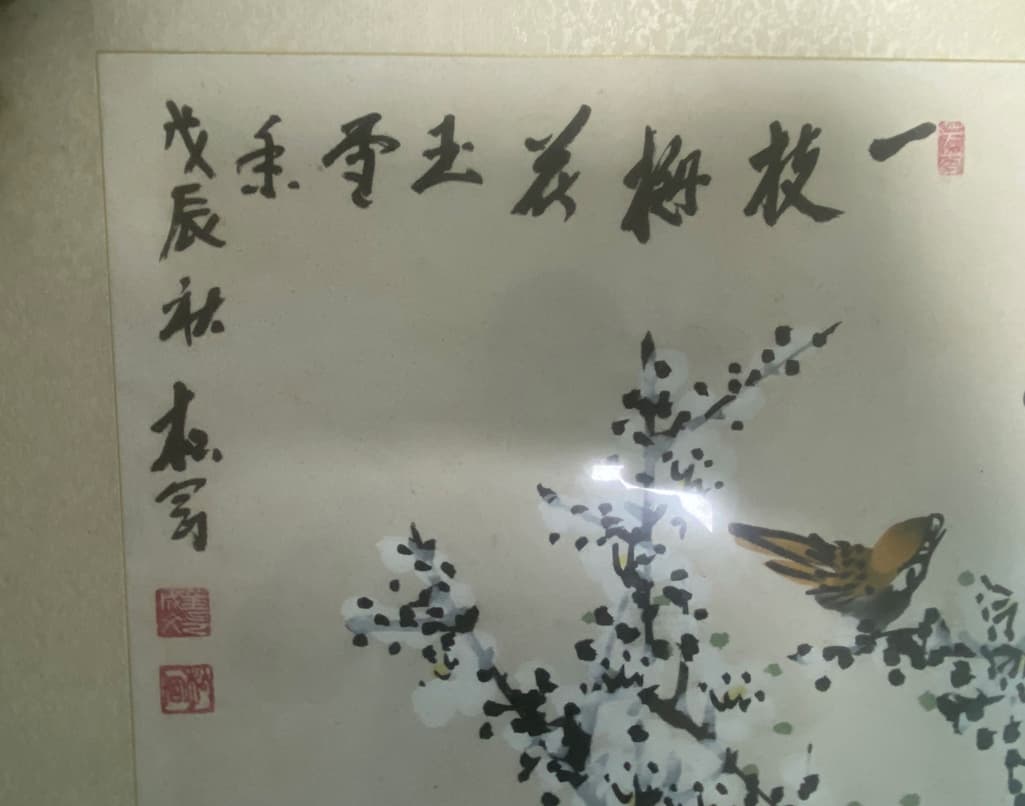 一枝梅花玉雪香
戊辰秋松翁